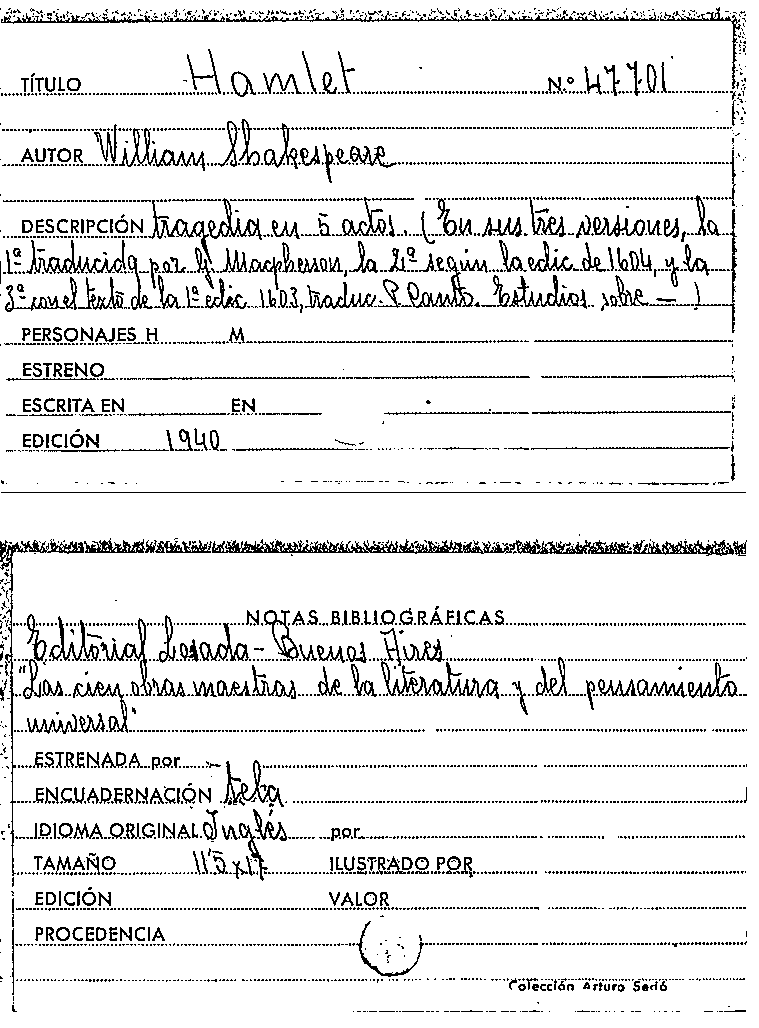 TÍTULO Hamlet N.º 47701
AUTOR William Shakespeare
DESCRIPCIÓN tragedia en 5 actos. (En sus tres versiones, la
1ª traducida por G. Macpherson, la 2ª según la edic de 1604, y la
3ª con el texto de la 1ª edic 1603, traduc. P. Canto. Estudios sobre — )
PERSONAJES H M
ESTRENO
ESCRITA EN EN
EDICIÓN 1940
NOTAS BIBLIOGRÁFICAS
Editorial Losada - Buenos Aires
"Las cien obras maestras de la literatura y del pensamiento
universal"
ESTRENADA por
ENCUADERNACIÓN tela
IDIOMA ORIGINAL Inglés por
TAMAÑO 11'5 x 17 ILUSTRADO POR
EDICIÓN VALOR
PROCEDENCIA
Colección Arturo Sedó